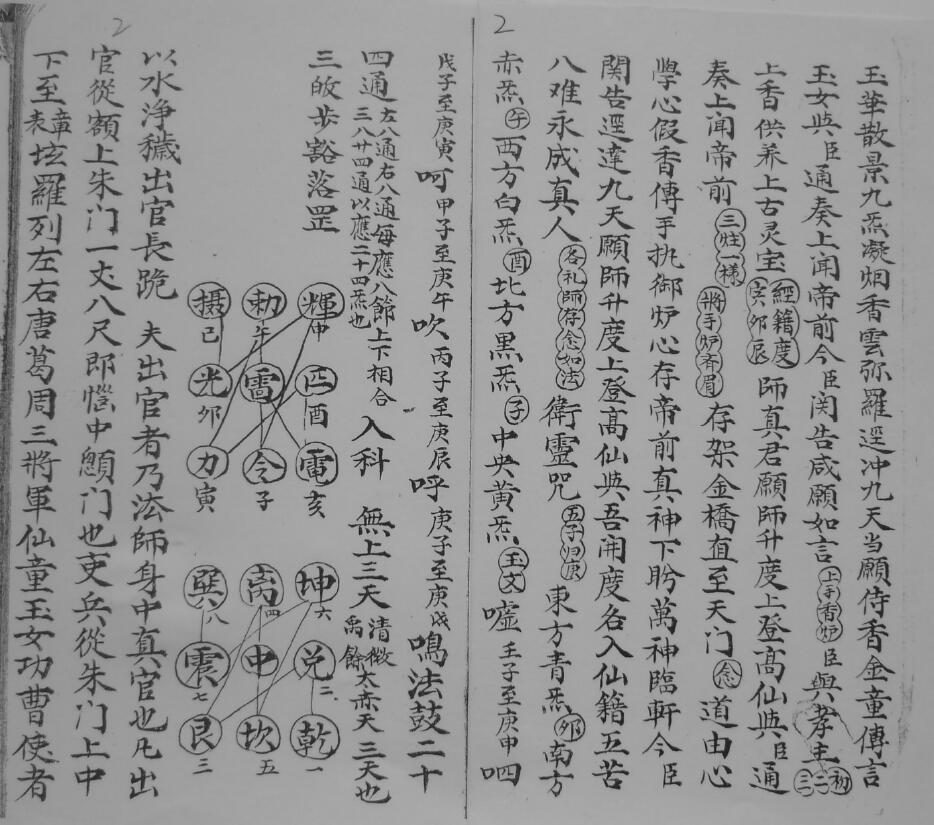 2
玉華散景九炁凝烟香雲弥羅逕冲九天当願侍香金童傳言
玉女與臣通奏上聞帝前今臣関告咸願如言上手香炉臣與孝主初二三
上香供养上古灵宝經籍度寅卯辰師真君願師升度上登高仙與臣通
奏上聞帝前三炷一樣將手炉齐眉存架金橋直至天门念道由心
學心假香傳手执御炉心存帝前真神下盻萬神臨軒今臣
関告逕達九天願師升度上登高仙與吾開度各入仙籍五苦
八难永成真人各礼師存念如法衛靈咒五子归庚東方青炁卯南方
赤炁午西方白炁酉北方黑炁子中央黄炁玉文嘘壬子至庚申呬
2
戊子至庚寅呵甲子至庚午吹丙子至庚辰呼庚子至庚戌鳴法鼓二十
四通左八通右八通每應八節上下相合三八廿四通以應二十四炁也入科無上三天清微禹餘大赤天三天也
三皈步豁落罡
輝申勅午摄巳
匹酉雷光卯
電亥令子力寅
坤六离四巽八
兑二中震七
乾一坎五艮三
以水净穢出官長跪夫出官者乃法師身中真官也凡出
官從額上朱门一丈八尺即惱中顖门也吏兵從朱门上中
下至章表坛羅列左右唐葛周三將軍仙童玉女功曹使者